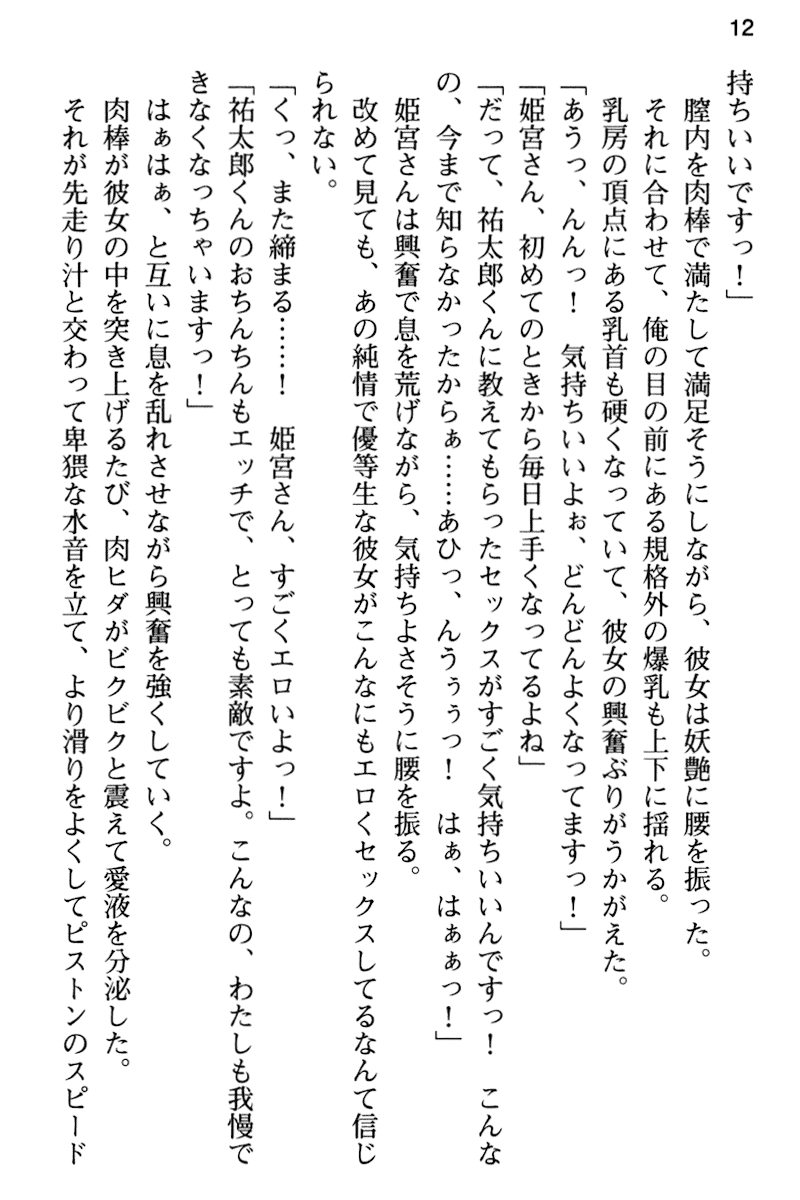 12
持ちいいですっ！」
　膣内を肉棒で満たして満足そうにしながら、彼女は妖艶に腰を振った。
　それに合わせて、俺の目の前にある規格外の爆乳も上下に揺れる。
　乳房の頂点にある乳首も硬くなっていて、彼女の興奮ぶりがうかがえた。
「あうっ、んんっ！　気持ちいいよぉ、どんどんよくなってますっ！」
「姫宮さん、初めてのときから毎日上手くなってるよね」
「だって、祐太郎くんに教えてもらったセックスがすごく気持ちいいんですっ！　こんな
の、今まで知らなかったからぁ……あひっ、んうぅぅっ！　はぁ、はぁぁっ！」
　姫宮さんは興奮で息を荒げながら、気持ちよさそうに腰を振る。
　改めて見ても、あの純情で優等生な彼女がこんなにもエロくセックスしてるなんて信じ
られない。
「くっ、また締まる……！　姫宮さん、すごくエロいよっ！」
「祐太郎くんのおちんちんもエッチで、とっても素敵ですよ。こんなの、わたしも我慢で
きなくなっちゃいますっ！」
　はぁはぁ、と互いに息を乱れさせながら興奮を強くしていく。
　肉棒が彼女の中を突き上げるたび、肉ヒダがビクビクと震えて愛液を分泌した。
　それが先走り汁と交わって卑猥な水音を立て、より滑りをよくしてピストンのスピード